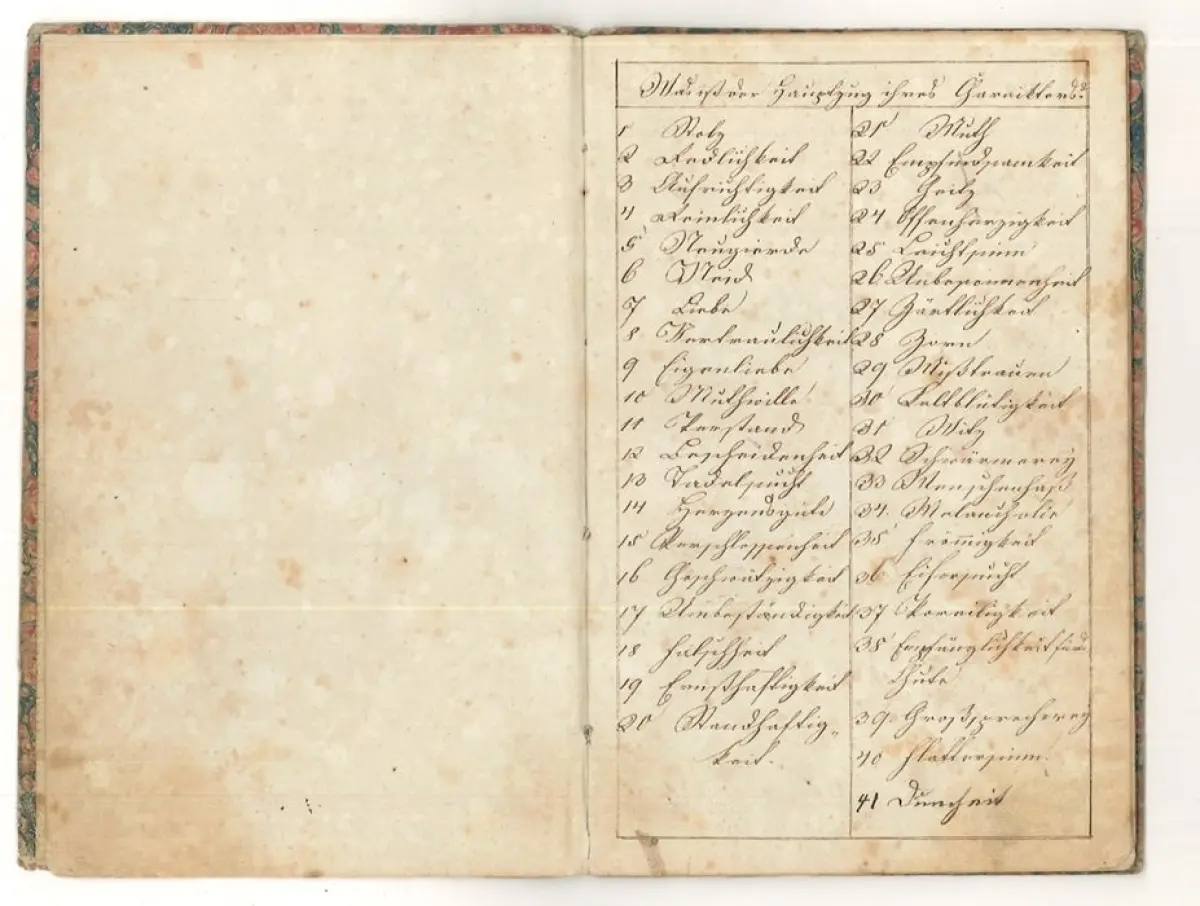 Was ist der Hauptzug ihres Garaikters?
1 Stolz
2 Redlichkeit
3 Aufrichtigkeit
4 Reinlichkeit
5 Neugierde
6 Neid
7 Liebe
8 Vertraulichkeit
9 Eigenliebe
10 Muthwille
11 Verstand
12 Bescheidenheit
13 Tadelsucht
14 Herzensgüte
15 Verschlossenheit
16 Geschwätzigkeit
17 Unbeständigkeit
18 Falschheit
19 Ernsthaftigkeit
20 Standhaftig„
keit.
21 Muth
22 Empfindsamkeit
23 Geitz
24 Offenherzigkeit
25 Leichtsinn
26. Unbesonnenheit
27 Zärtlichkeit
28 Zorn
29 Mißtrauen
30 Kaltblütigkeit
31 Witz
32 Schwärmerey
33 Menschenhaß
34. Melancholie
35 Fro͞migkeit
36 Eifersucht
37 Voreiligkeit
38 Empfänglichkeit fürs
Gute
39. Großsprecherey
40 Flattersinn.
41 Dumheit